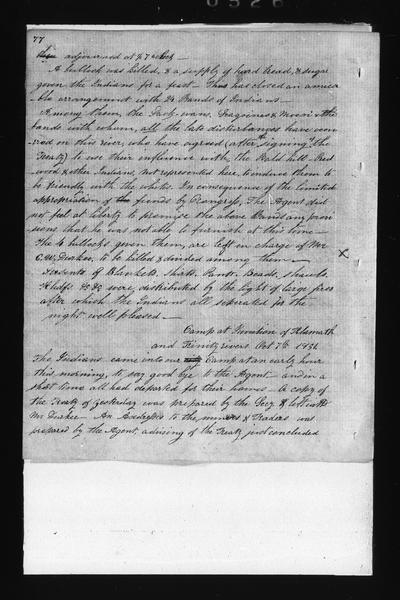 0526
77
adjourned at ½ 7 o'clock —
A bullock was killed, & a supply of hard bread, & sugar
given the Indians for a feast — Thus has closed an amica
ble arrangement with 24 Bands of Indians —
Among them, the
bands with whom, all the late disturbances have occur
red on this river, who have agreed (after signing the
Treaty) to use their influence with, the Bald hill, Red
wood & other Indians, not represented here, to induce them to
be friendly with the whites. In consequence of the limited
appropriation of the funds by Congress, The Agent did
not feel at liberty to promise the above Bands any provi
sions that he was not able to furnish at this time —
The 4 bullocks given them, are left in charge of Mr
C. W. Durkee, to be killed & divided among them —
Presents of Blankets, Shirts, Pants, Beads, Shawls,
Hkdfs &c &c were, distributed by the light of large fires
after which the Indians all seperated for the
night well pleased —
Camp at Junction of Klamath
and Trinity rivers Oct 7th 1851
The Indians came into our Camp at an early hour
this morning, to say good bye to the Agent — and in a
short time all had departed for their homes — A copy of
the Treaty of yesterday was prepared by the Secy & left with
Mr Durkee — An Address to the miners & Traders was
prepared by the Agent, advising of the Treaty just concluded
X